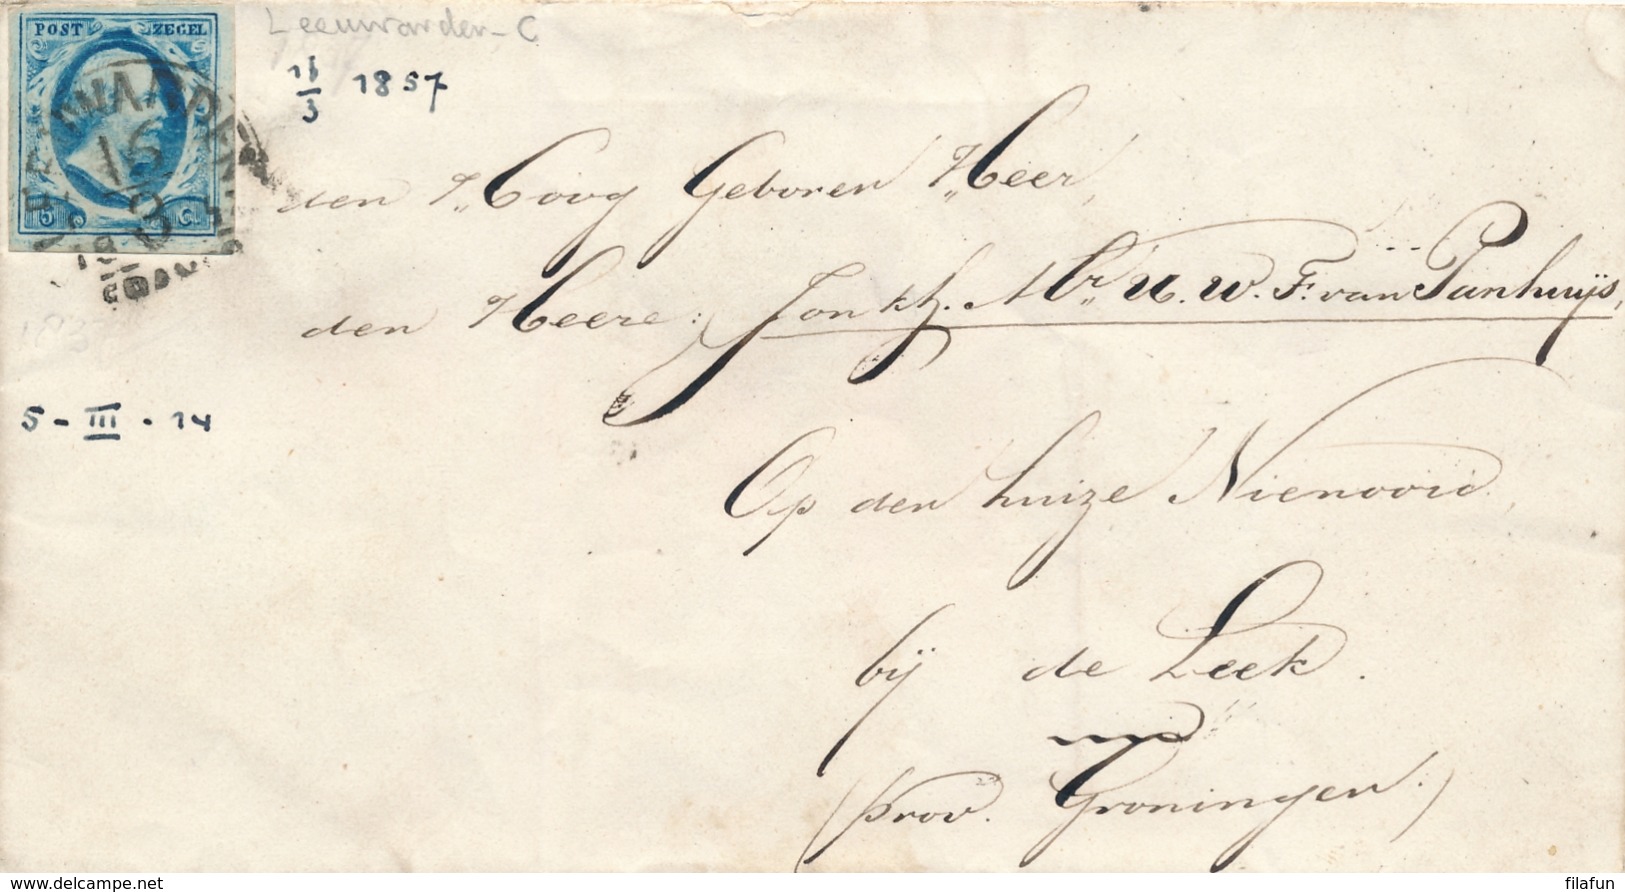 POST ZEGEL
Leeuwarden-C
16/3 1857
5 C
den H. Hoog Geboren Heer,
den Heere: Jonkh. Mr. U. W. F. van Panhuijs,
5 - III - 14
Op den huize Nienoord,
bij de Leek.
(prov. Groningen.)
www.delcampe.net
filafun